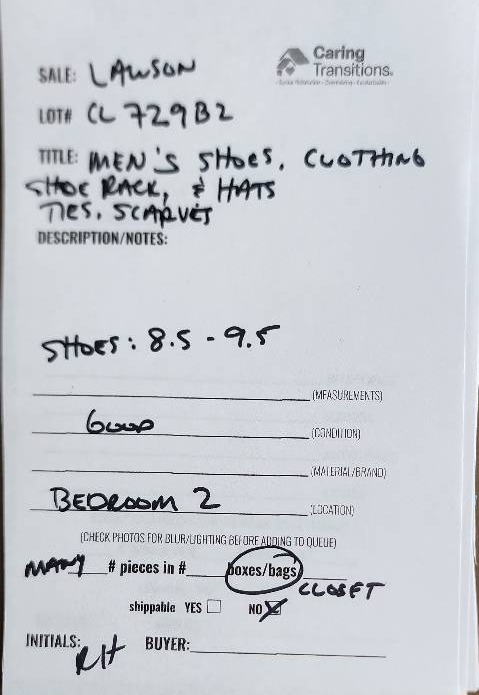 Caring
Transitions®
SALE: LAWSON
LOT# CL 729B2
TITLE: MEN'S SHOES, CLOTHING
SHOE RACK, & HATS
TIES, SCARVES
DESCRIPTION/NOTES:
SHOES: 8.5 - 9.5
(MEASUREMENTS)
GOOD (CONDITION)
(MATERIAL/BRAND)
BEDROOM 2 (LOCATION)
(CHECK PHOTOS FOR BLUR/LIGHTING BEFORE ADDING TO QUEUE)
MANY # pieces in # boxes/bags
CLOSET
shippable YES NO
INITIALS: RH BUYER: